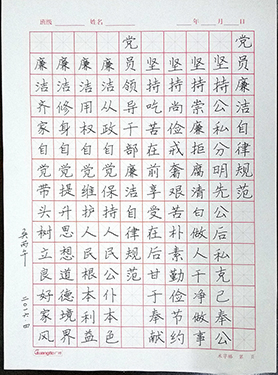 班级 姓名 年 月 日
党员廉洁自律规范
坚持公私分明先公后私克己奉公
坚持崇廉拒腐清白做人干净做事
坚持尚俭戒奢艰苦朴素勤俭节约
坚持吃苦在前享受在后甘于奉献
党员领导干部廉洁自律规范
廉洁从政自觉保持人民公仆本色
廉洁用权自觉维护人民根本利益
廉洁修身自觉提升思想道德境界
廉洁齐家自觉带头树立良好家风
二〇一六.四
Guangbo